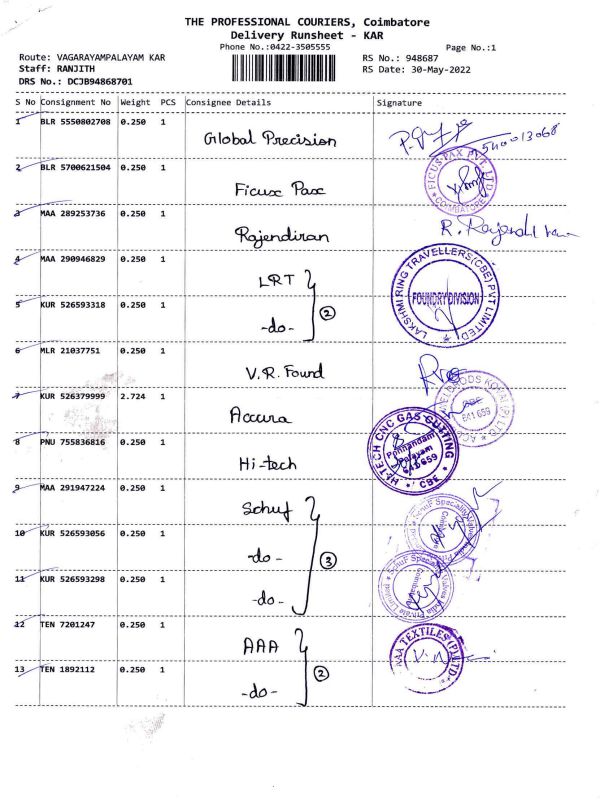 THE PROFESSIONAL COURIERS, Coimbatore
Delivery Runsheet - KAR
Phone No.:0422-3505555
Page No.:1
Route: VAGARAYAMPALAYAM KAR
RS No.: 948687
Staff: RANJITH
RS Date: 30-May-2022
DRS No.: DCJB94868701
S No Consignment No Weight PCS Consignee Details Signature
1 BLR 5550802708 0.250 1
Global Precision
2 BLR 5700621504 0.250 1
Ficusx Pax
FICUS PAX PVT. LTD
COIMBATORE
3 MAA 289253736 0.250 1
Rajendiran
R. Rajendiran
4 MAA 290946829 0.250 1
LRT
LAKSHMI RING TRAVELLERS(CBE) PVT LIMITED
FOUNDRY DIVISION
5 KUR 526593318 0.250 1
-do- 2
6 MLR 21037751 0.250 1
V.R. Found
7 KUR 526379999 2.724 1
Accura
CBE
641 659
8 PNU 755836816 0.250 1
Hi-tech
HI-TECH CNC GAS CUTTING
Ponnandam
Palayam
641 659
CBE
9 MAA 291947224 0.250 1
Schuf
10 KUR 526593056 0.250 1
-do- 3
11 KUR 526593298 0.250 1
-do-
SchuF Speciality Valves India Private Limited
Coimbatore
12 TEN 7201247 0.250 1
AAA
AAA TEXTILES (P) LTD
13 TEN 1892112 0.250 1
-do- 2